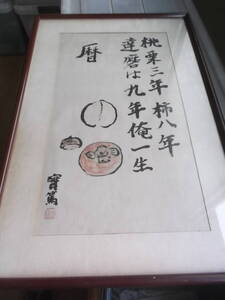 桃栗三年柿八年
達磨は九年俺一生
暦
實篤